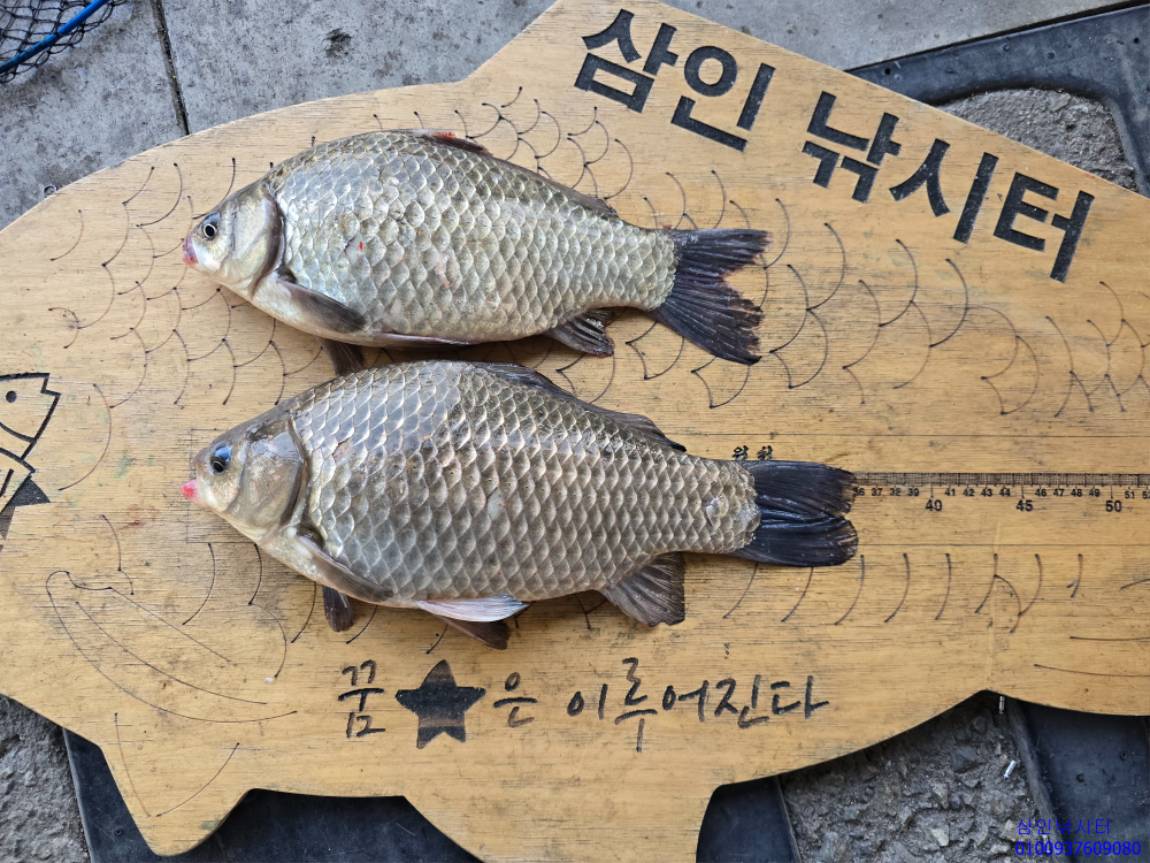 삼인 낚시터
36 37 38 39 40 41 42 43 44 45 46 47 48 49 50 51
꿈★은 이루어진다
삼인낚시터
0100937609080